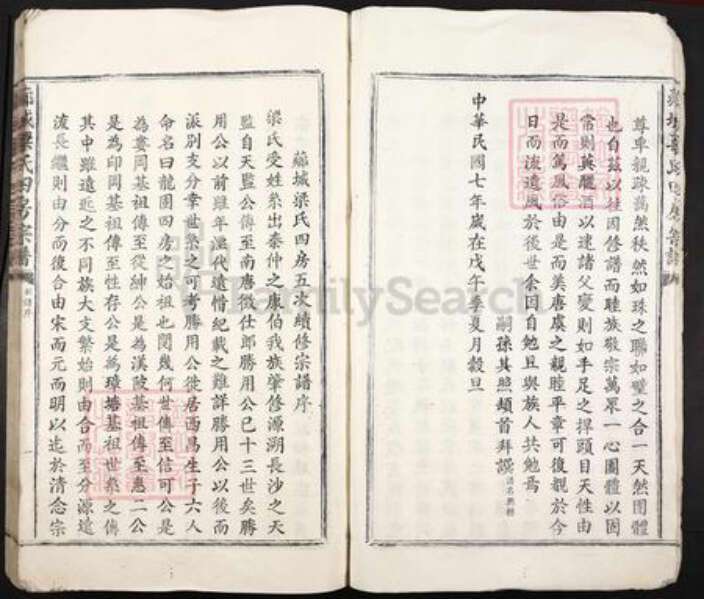 尊卑親疎藹然秩然如珠之聯如璧之合一天然團體
也自茲以往因修譜而睦族敬宗萬眾一心團體以固
常則萸釃酒以速諸父變則如手足之捍頭目天性由
是而篤風俗由是而美唐虞之親睦平章可復覩於今
日而流遺風於後世余因自勉且與族人共勉焉
嗣孫其照頓首拜譔
中華民國七年歲在戊午季夏月穀旦
梁氏四房宗譜
城梁氏四房五次續修宗譜序
梁氏受姓系出秦仲之康伯我族肇修源溯長沙之天
監自天監公傳至南唐徵仕郎勝用公已十三世矣勝
用公以前雖年湮代遠惜紀載之難詳勝用公以後而
派別支分幸世系之可考勝用公徙居西昌生子六人
命名曰龍圖四房之始祖也閱幾何世傳至信可公是
為婁岡基祖傳至從紳公是為漢陂基祖傳至惠二公
是為印岡基祖傳至性存公是為璋塘基祖世系之傳
其中雖遠近之不同族大支繁始則由合而至分源遠
流長繼則由分而復合由宋而元而明以迄於清念宗
一
FamilySearch